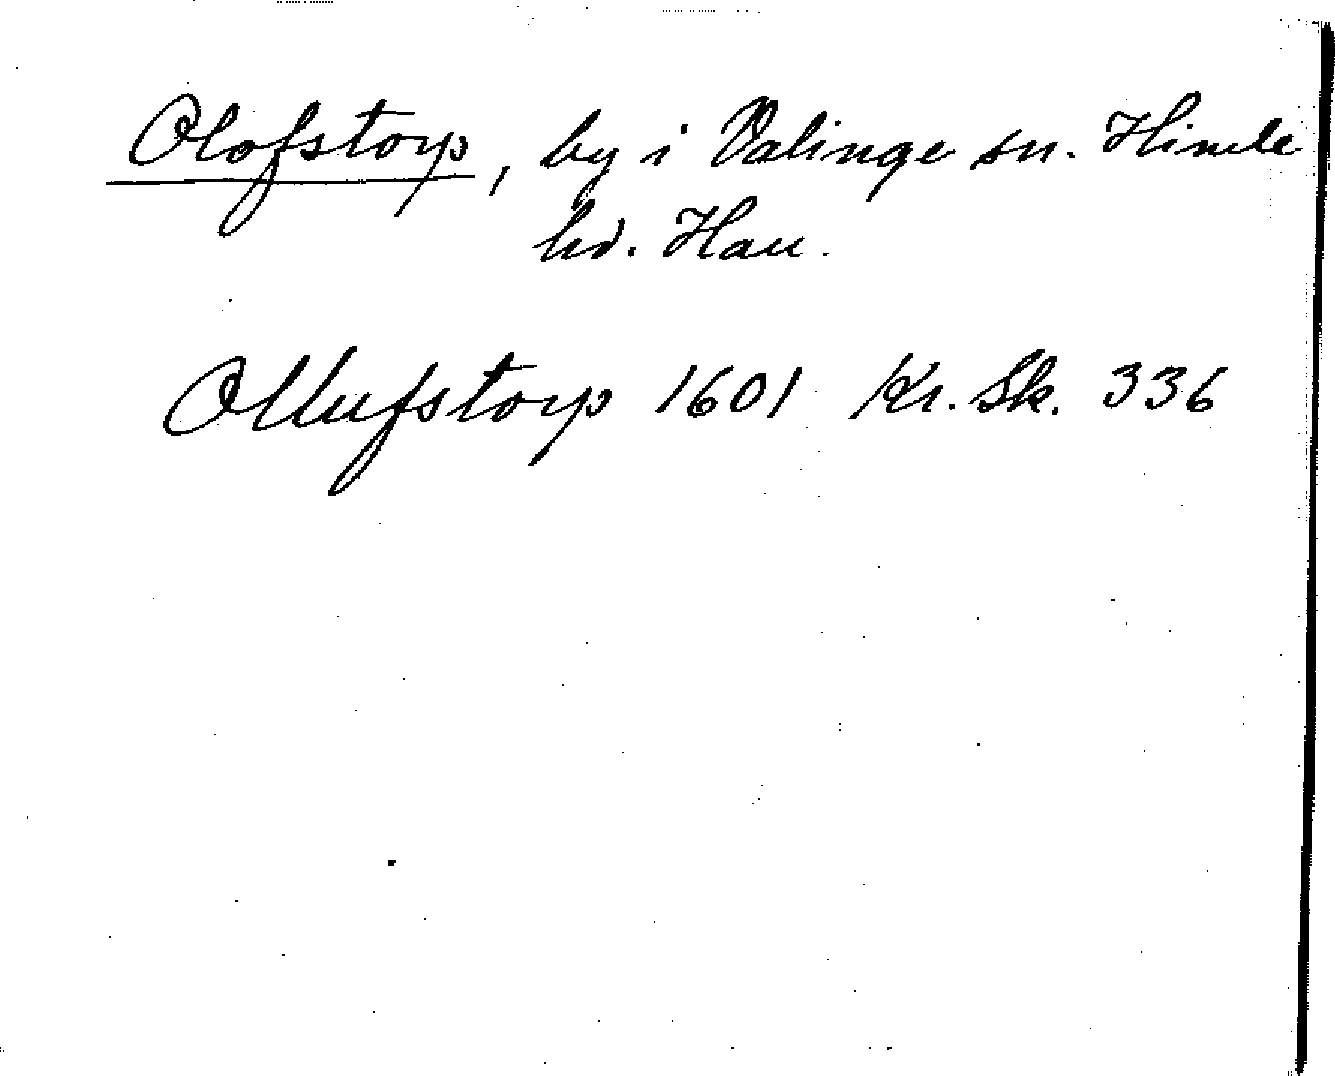 Olofstorp, by i Valinge sn. Himle
hd. Hall.
Ollufstorp 1601 Kr. Sk. 336